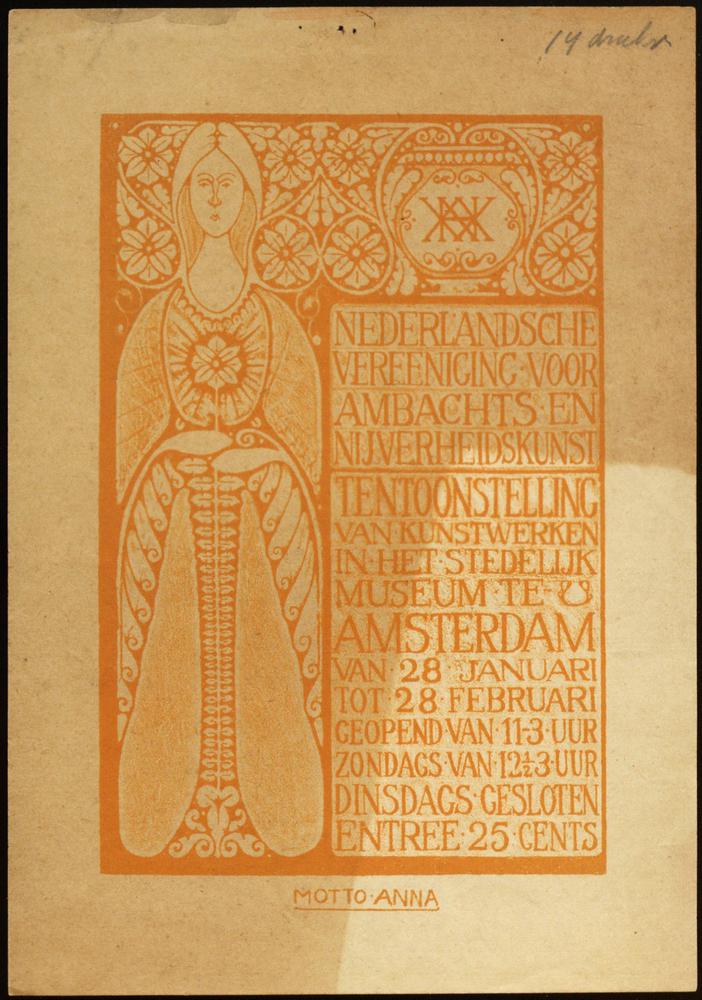 14
NEDERLANDSCHE
VEREENIGING·VOOR
AMBACHTS·EN
NIJVERHEIDSKUNST
TENTOONSTELLING
VAN KUNSTWERKEN
IN·HET·STEDELIJK
MUSEUM·TE·
AMSTERDAM
VAN·28·JANUARI
TOT·28·FEBRUARI
GEOPEND·VAN·11-3·UUR
ZONDAGS·VAN·12½-3·UUR
DINSDAGS·GESLOTEN
ENTREE·25·CENTS
MOTTO·ANNA